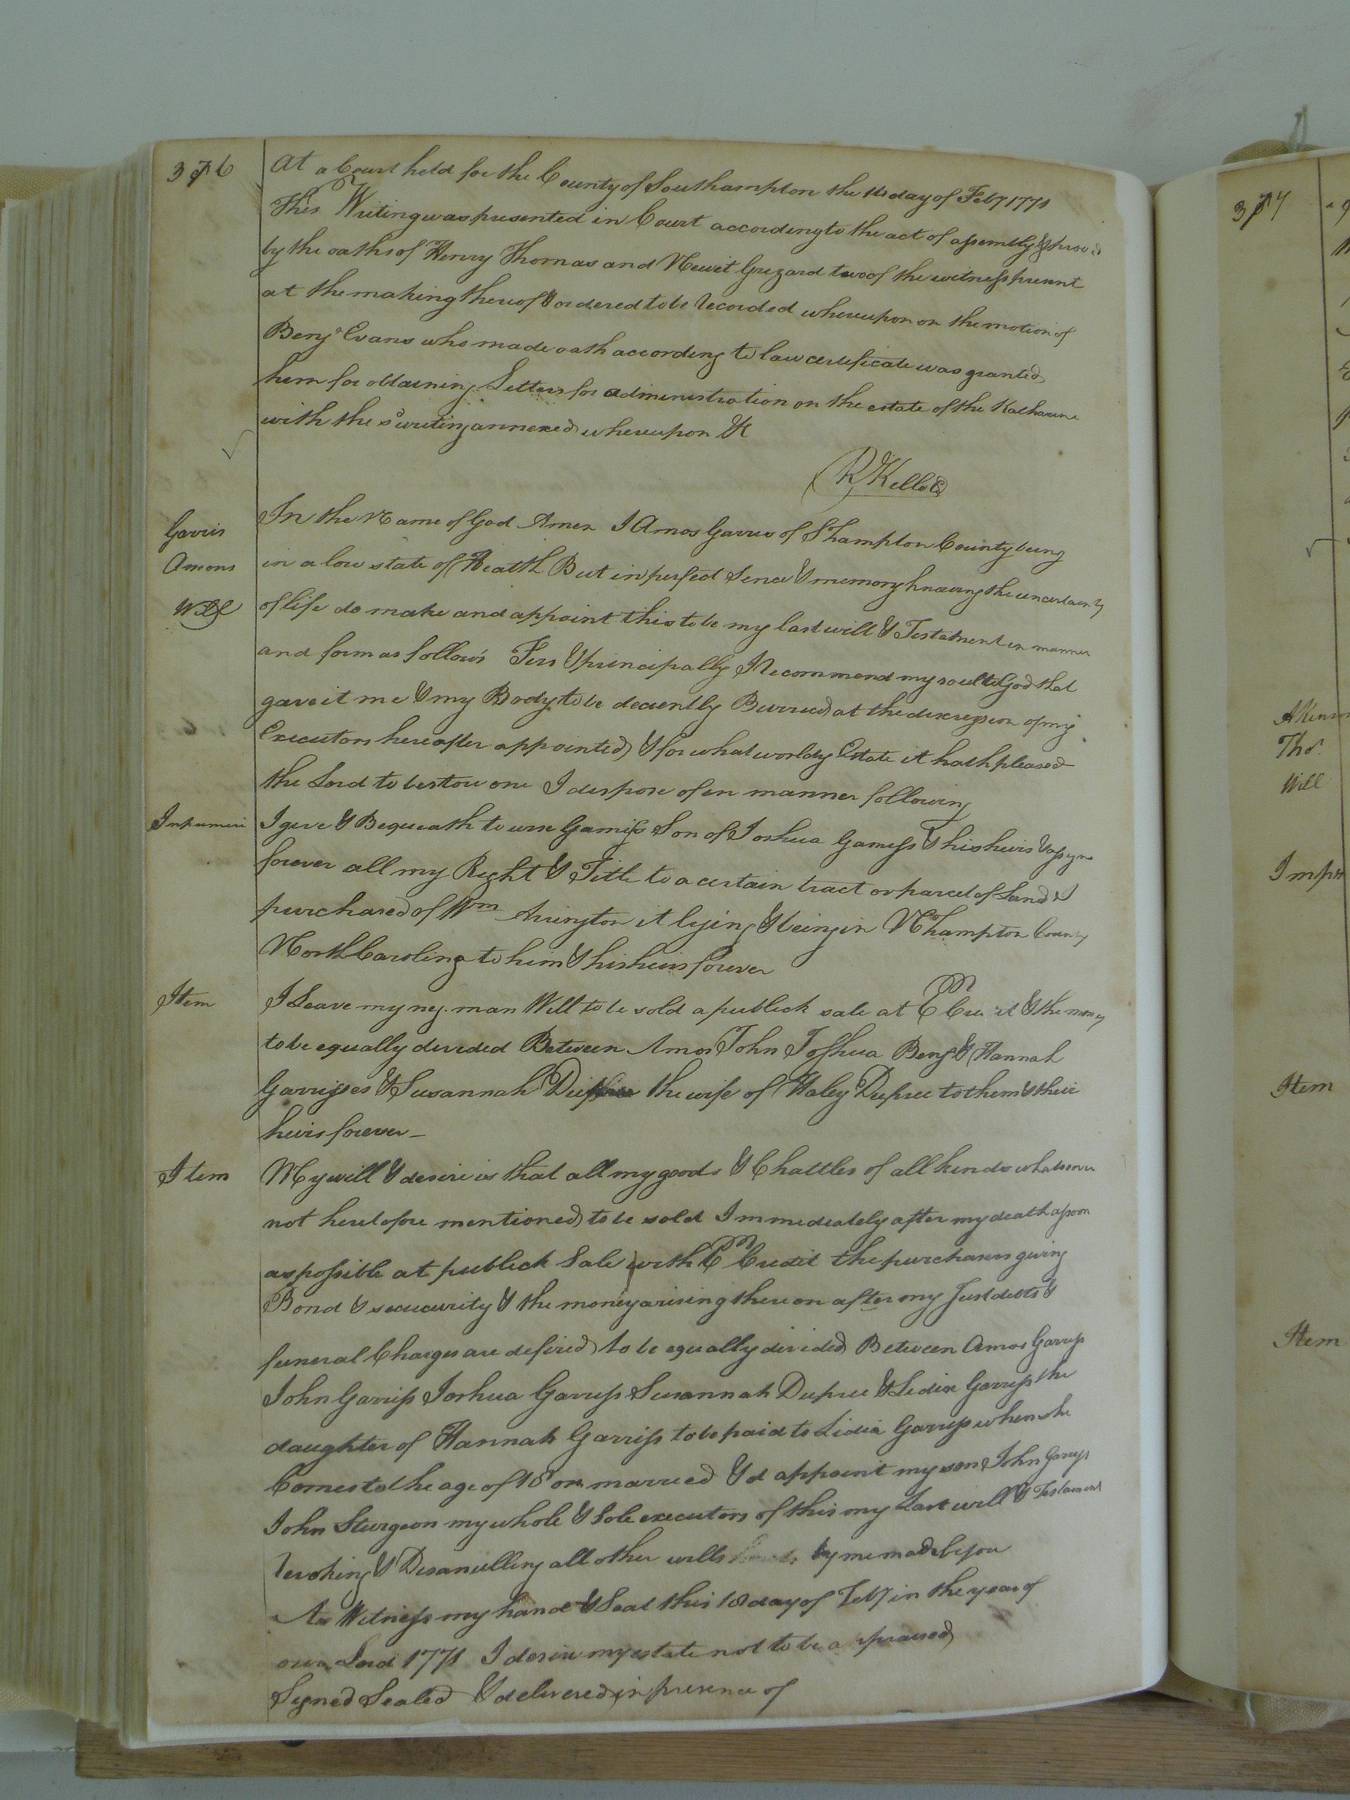 376
At a Court held for the County of Southampton the 14 day of Feby 1771
This Writing was presented in Court according to the act of assembly & proved
by the oaths of Henry Thomas and Newit Grizard two of the witness present
at the making thereof & ordered to be recorded whereupon on the motion of
Benja Evans who made oath according to law certificate was granted
him for obtaining Letters for administration on the estate of the Katharine
with the sd writing annexed whereupon &c
R Kello
Garris
Amons
Will
In the Name of God Amen I Amos Garris of S hampton County being
in a low state of Health But in perfect Sence & memory knowing the uncertainty
of life do make and appoint this to be my last will & Testament in manner
and form as follows Firs & principally I Recommend my soul to God that
gave it me & my Body to be decently Burried at the discression of my
Executors hereafter appointed & for what worldy Estate it hath pleased
the Lord to bestow one I dispose of in manner following
I give & Bequeath to Son of Joshua & his heirs & assigns
forever all my Right & Title to a certain tract or parcel of Land I
purchased of Wm Arington it lying & being in No hampton County
North Carolina to him & his heirs forever
Item
I Leave my neg. man Will to be sold a publick sale at & the money
to be equally devided Between Amos John Joshua Benj & Hannah
Garrisses & Susannah the wife of Haley Dupree to them & their
heirs forever
Item
My will & desire is that all my goods & Chattles of all kinds whatsoever
not heretofore mentioned to be sold Immediately after my death as soon
as possible at publick Sale with Credit the purchasers giving
Bond & secucurity & the money arising thereon after my Just debts &
funeral Charges are to be equally devided Between Amos Garriss
John Garriss Joshua Garriss Susannah Dupree & Lidia Garriss the
daughter of Hannah Garriss to be paid to Lidia Garriss when she
Comes to the age of 18 or married & d appoint my son John Garriss
John Sturgeon my whole & Sole executors of this my Last will & Testament
revoking & Disanulling all other wills by me made before
As Witness my hand & Seal this 18 day of Feby in the year of
our Lord 1771 I desire my estate not to be a praised
Signed Sealed & delivered in presence of
377
Tho.
Will
Item
Item